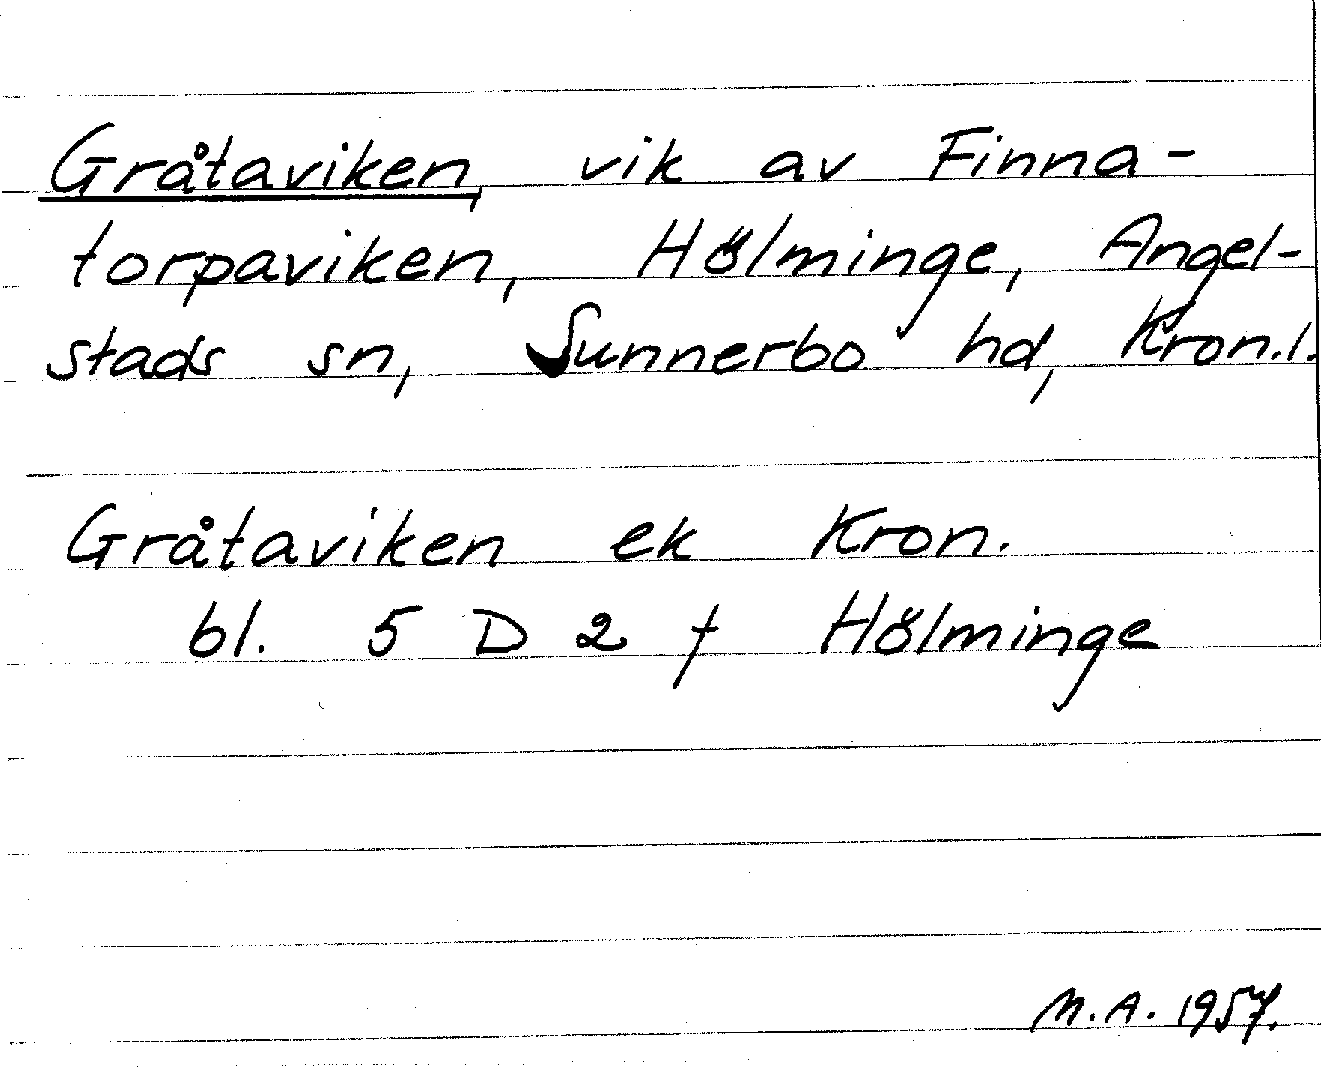 Gråtaviken, vik av Finna-
torpaviken, Hölminge, Angel-
stads sn, Sunnerbo hd, Kron.l.
Gråtaviken ek Kron.
bl. 5 D 2 f Hölminge
M.A. 1957.